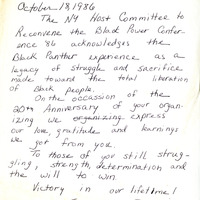 October 18, 1986
The NY Host Committee to
Reconvene the Black Power Confer-
ence '86 acknowledges the
Black Panther experience as a
legacy of struggle and sacrifice
made toward the total liberation
of Black people.
On the occassion of the
20th Anniversary of your organ-
izing we organizing express
our love, gratitude and learnings
we got from you.
To those of yor still strug-
gling, strength, determination and
the will to win
Victory in our lifetime!